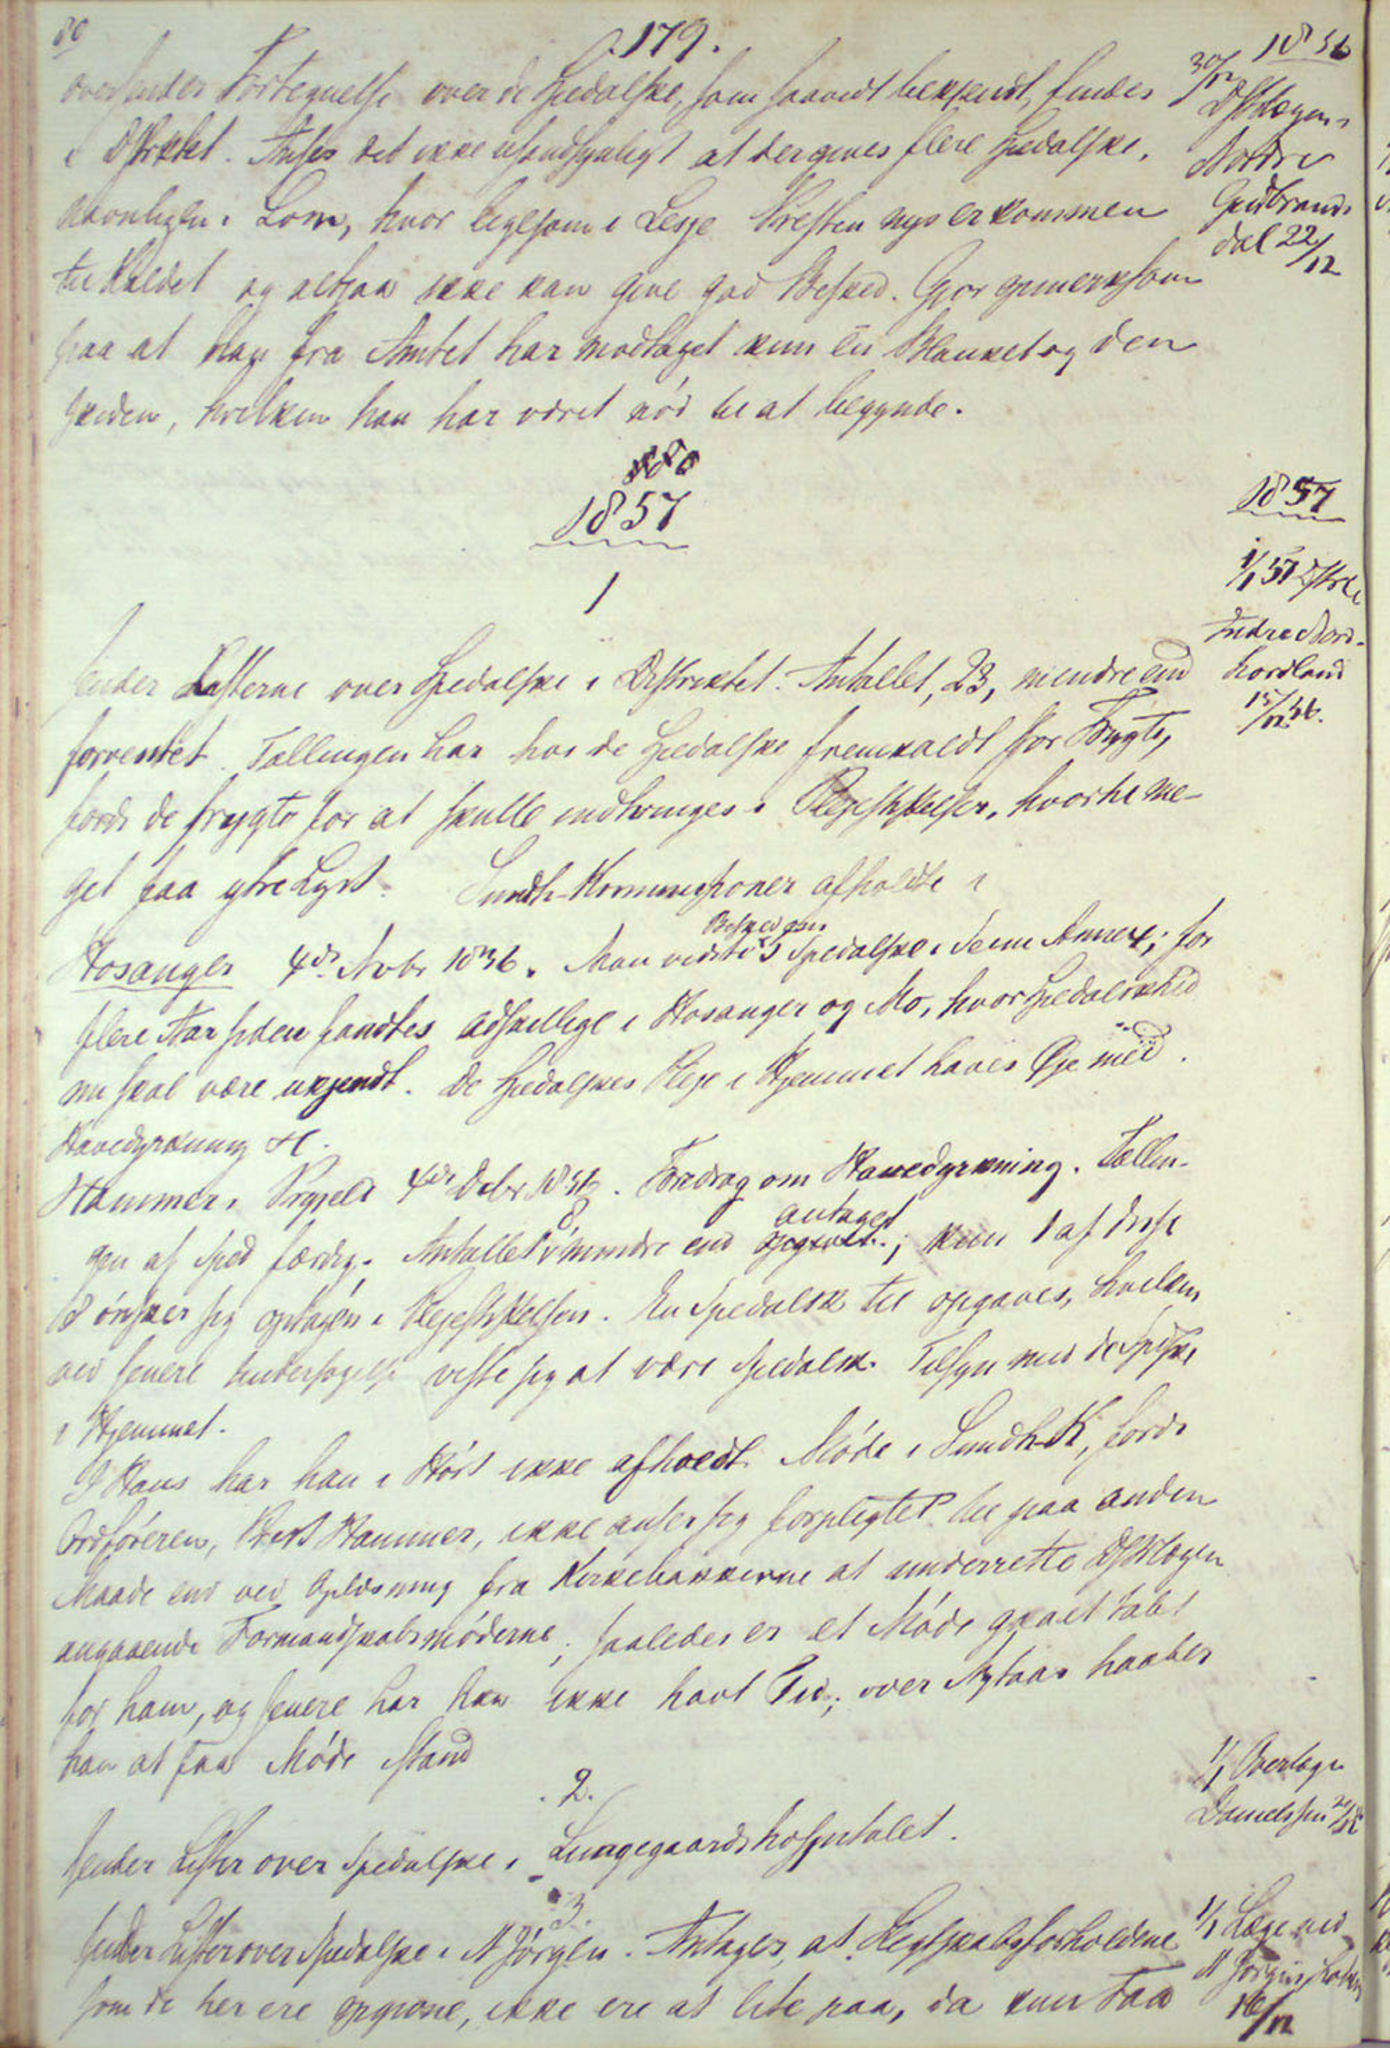 80
179.
1856
oversender Fortegnelse over de Spedalske, som saavidt bekjendt, findes
i Distriktet. Anser det ikke usandsynligt at der gives flere Spedalske,
navnligen i Lom, hvor ligesom i Lesje Presten nys er kommen
til Kaldet og altsaa ikke kan give god Besked. Gjør opmerksom
paa at han fra Amtet har modtaget kun en Blanket og den
, hvilken han har været nød til at begynde.
30/12 DstrLægen i
Nordre
Gudbrands
dal 22/12
1857
1857
1
1/1 57 Dstrl i
Indre Nord-
hordland
15/12 56.
sender Listerne over Spedalske i Distriktet. Antallet, 23, mindre end
forventet. Tællingen har hos de Spedalske fremkaldt stor Frygt,
fordi de frygte for at skulle indtvinges i Plejestiftelser, hvortil me-
get faa ytre Lyst. Sundh-Kommissioner afholdte i
Hosanger 4de Nvbr 1856. Man vidste Besked om 3 Spedalske i Annex; for
flere Aar siden fandtes adskillige i Hosanger og Mo, hvor Spedalskhed
nu skal være ukjendt. De Spedalskes Pleje i Hjemmet haves Øje med.
Havedyrkning &c.
Hammers Prgjeld 4de Dcbr 1856. Foredrag om Havedyrkning. Tællin-
gen af Sped færdig. Antallet 8 mindre end opgivet antaget; kun 1 af disse
8 ønsker sig optagen i Plejestiftelsen. En Spedalsk til opgaves, hvilken
ved senere Undersøgelse viste sig at være Spedalsk. Tilsyn med de Spdske
i Hjemmet.
I Haus har han i Høst ikke afholdt Møde i Sundh-K, fordi
Ordføreren, Prest Hammer, ikke anser sig forpligtet til paa anden
Maade end ved Oplæsning fra Kirkebakkerne at underrette DstrLægen
angaaende Formandskabsmøderne; saaledes er et Møde gaaet tabt
for ham, og senere har han ikke havt Tid; over Nytaar haaber
han at faa Møde istand
2.
1/1 Overlæge
Danielssen
sender Lister over Spedalske i Lungegaardshospitalet.
3.
1/1 Læge ved
St Jørgens Hosp
16/12
sender Lister over Spedalske i St Jørgen. Antages, at Slegtskabsforholdene
som de her ere opgivne, ikke ere at lite paa, da kun Faa